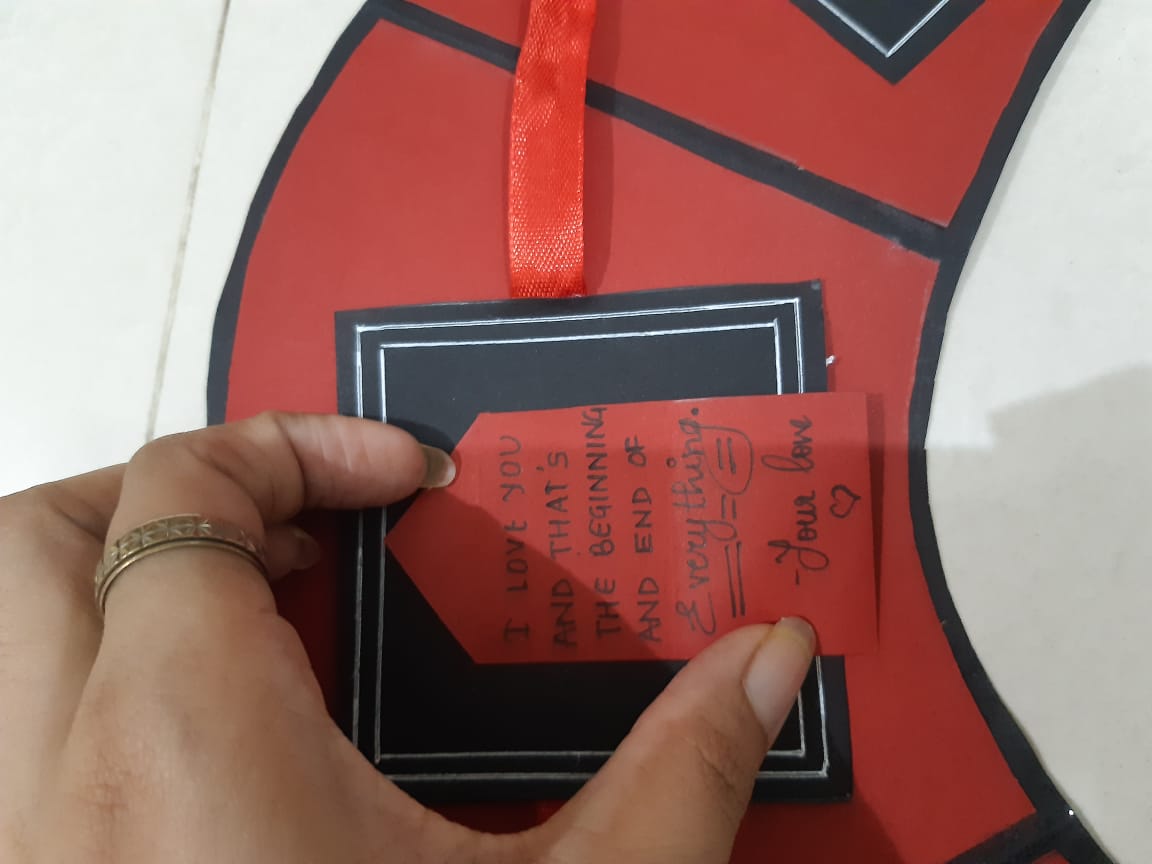 I LOVE YOU
AND THAT'S
THE BEGINNING
AND END OF
Everything.
-Your love
♡